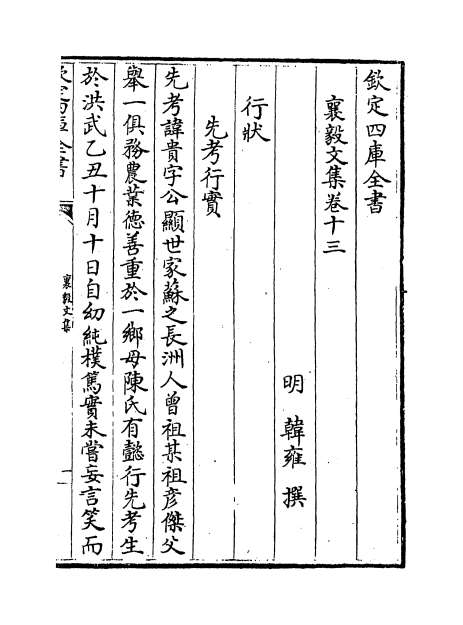 欽定四庫全書
襄毅文集卷十三
明 韓雍 撰
行狀
先考行實
先考諱貴字公顯世家蘇之長洲人曾祖某祖彥傑父
舉一俱務農業德善重於一鄉母陳氏有懿行先考生
於洪武乙丑十月十日自幼純樸篤實未嘗妄言笑而
欽定四庫全書
襄毅文集
一